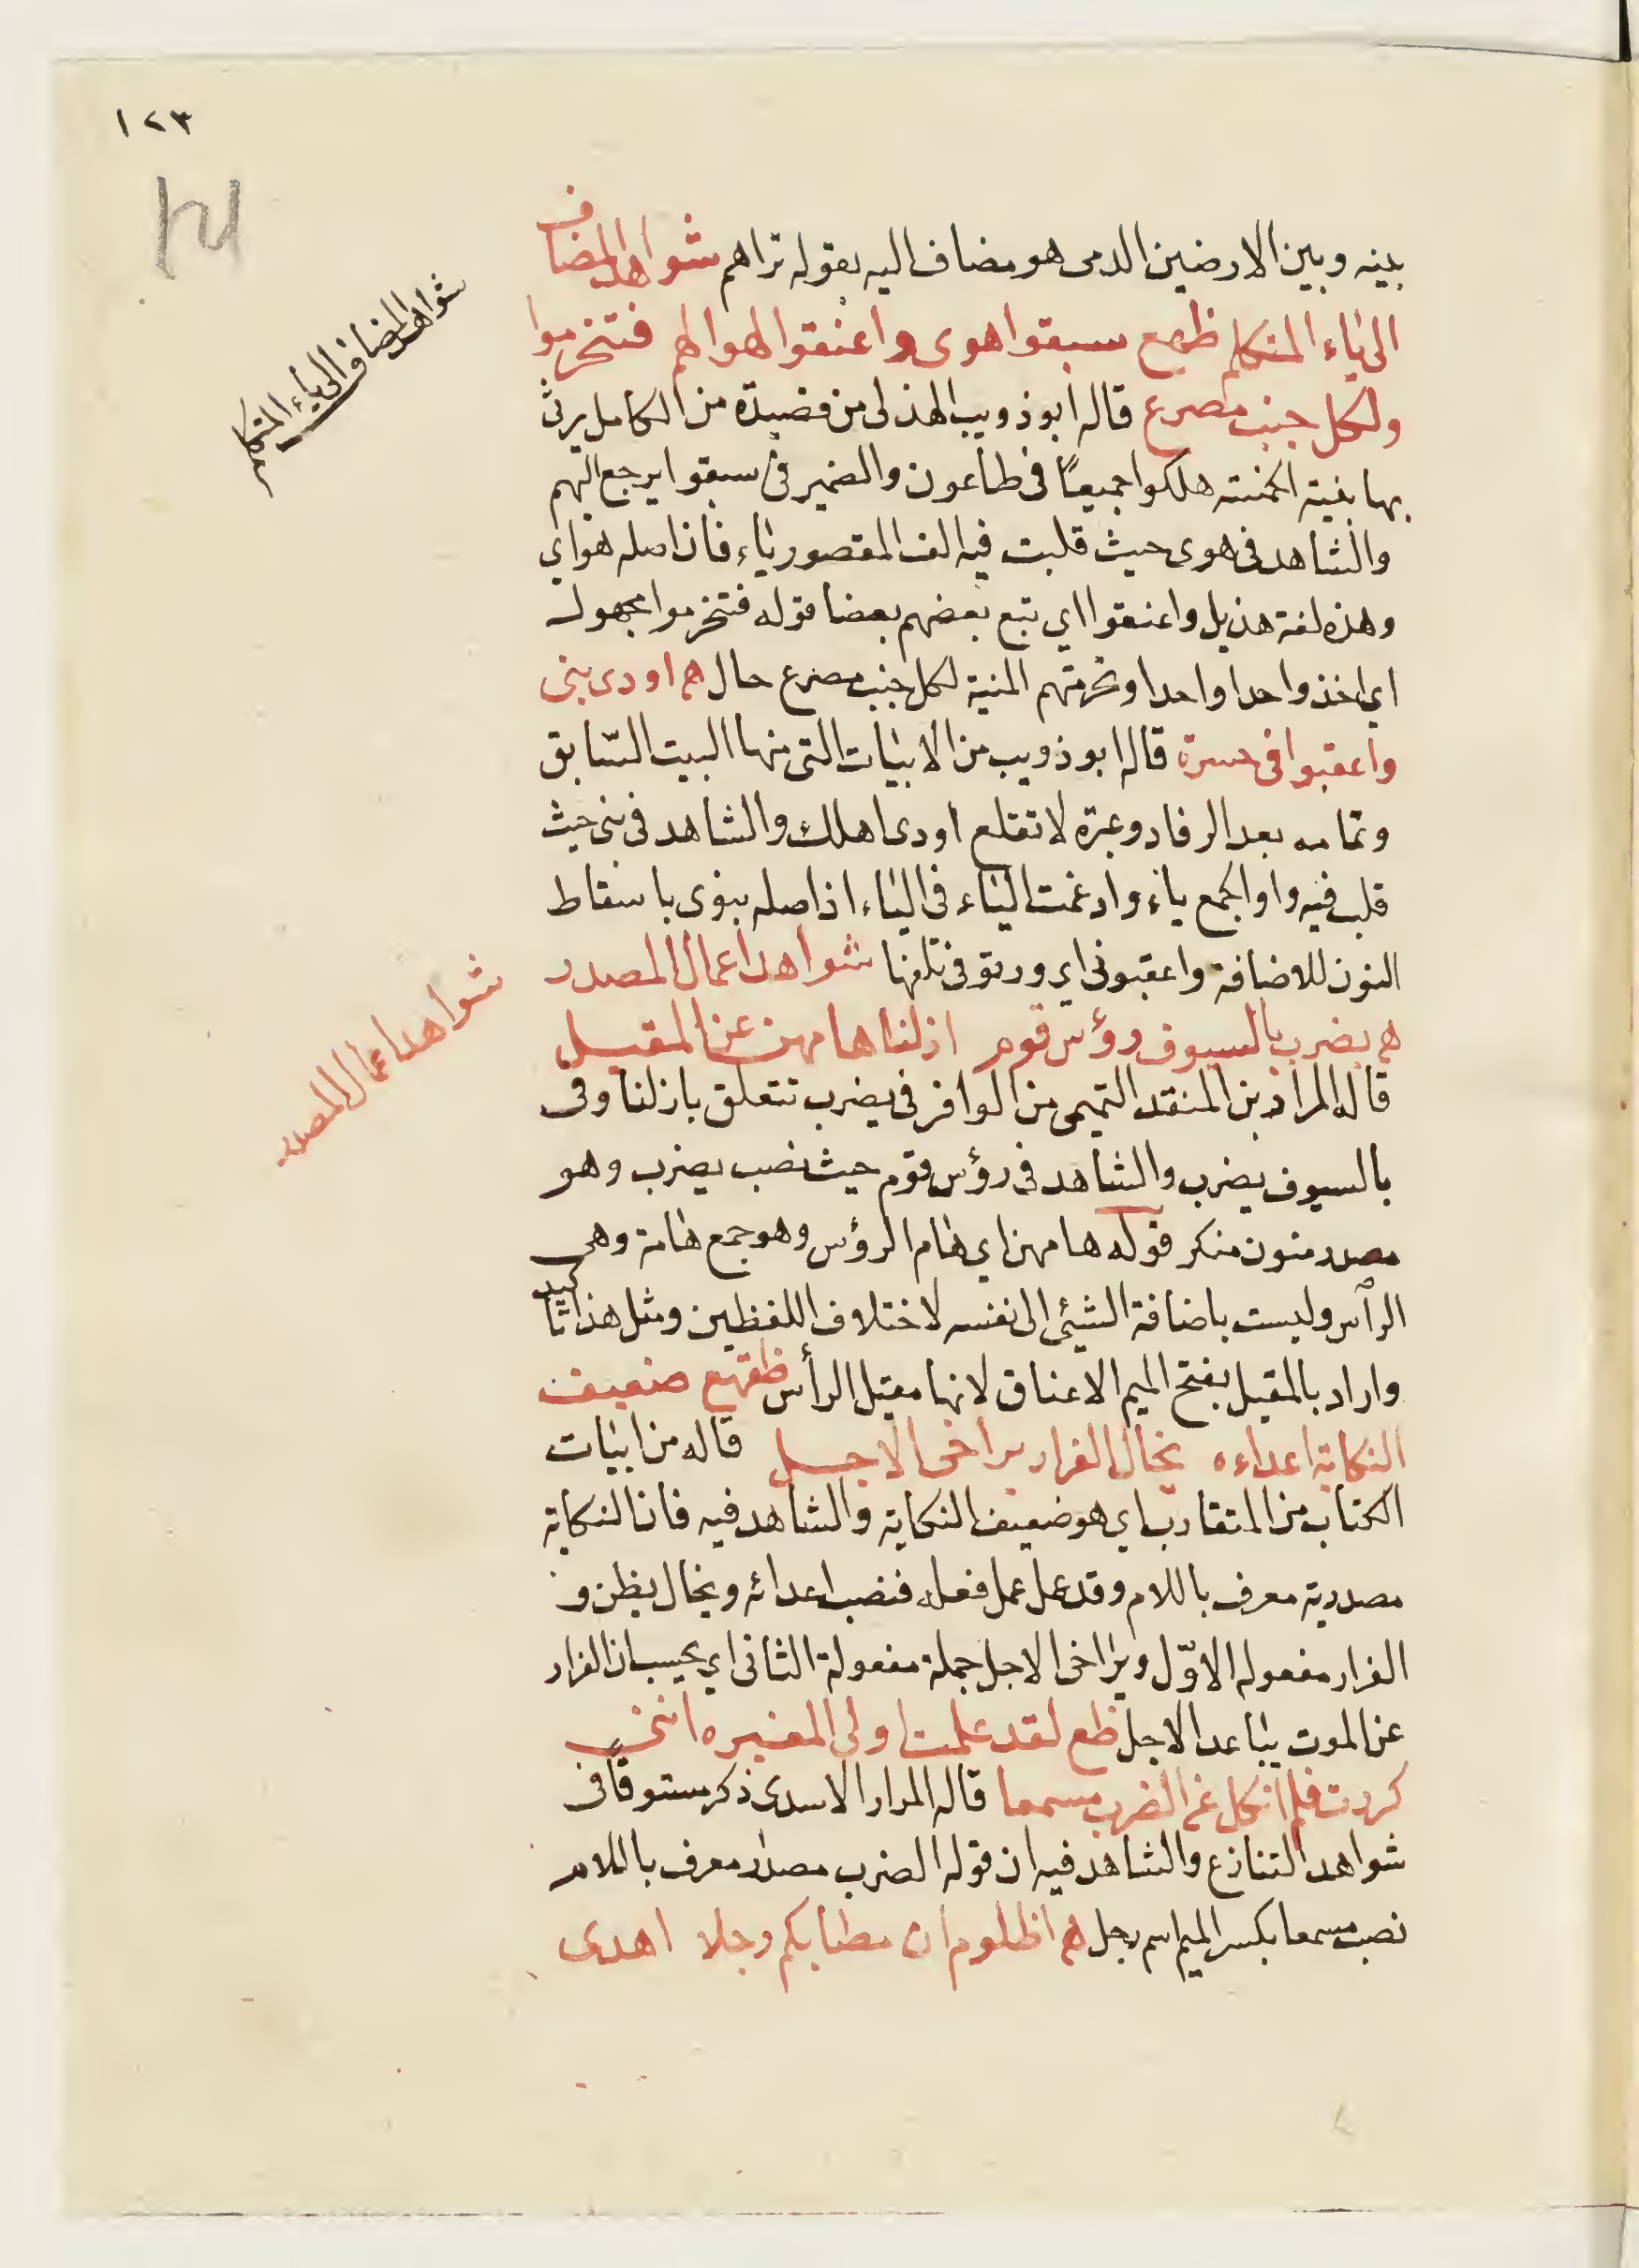 ١٢٣
بينه وبين الارضين الدمى هو مضاف اليه بقوله تراهم شواهد المضاف
الى ياء المتكلم ظهع سبقوا هوى واعنقوا لهواهم فتخرموا
ولكل جنب مصرع قاله ابو ذويب الهذلى من قصيدة من الكامل يرثى
بها بنيه الخمسته هلكوا جميعًا فى طاعون والضمير فى سبقوا يرجع اليهم
والشاهد فى هوى حيث قلبت فيه الف المقصور ياء فان اصله هواي
وهذه لغة هذيل واعنقوا اي تبع بعضهم بعضا قوله فتخرموا مجهول
اي اخذ واحدا واحدا وتخرمتهم المنية لكل جنب مصرع حال هع اودى بنى
واعقبوا فى حسرة قاله ابو ذويب من الابيات التى منها البيت السّابق
وتمامه بعد الرقاد وعبرة لا تقلع اودى اهلك والشاهد فى بنى حيث
قلب فيه واو الجمع ياء وادغمت الياء فى الياء اذ اصله بنوى باسقاط
النون للاضافة واعقبونى اي ورثونى شواهد اعمال المصدر
هع بضرب بالسيوف رؤس قوم ازلنا هامهن عن المقيل
قاله المراد بن المنقد التميمى من الوافر فى بضرب تتعلق بازلنا وفى
بالسيوف بضرب والشاهد فى رؤس قوم حيث نصب بضرب وهو
مصدر منون منكر قوله هامهن اي هام الرؤس وهو جمع هامة وهى
الرأس وليست باضافة الشئى الى نفسه لاختلاف اللفظين ومثل هذا تاكيد
واراد بالمقيل بفتح الميم الاعناق لانها مقيل الرأس ظقهع ضعيف
النكاية اعداءه يخال الفرار يراخى الاجل قاله من ابيات
الكتاب من المتقارب اي هو ضعيف النكاية والشاهد فيه فان النكاية
مصدرية معرف باللام وقد عمل عمل فعله فنصب اعدائه ويخال يظن و
الفرار مفعوله الاوّل ويراخى الاجل جملة مفعولة الثانى اي يحسب ان الفرار
عن الموت يباعد الاجل ظع لقد علمت اولى المغيره اننى
كررت فلم انكل عن الضرب مسمعا قاله المرار الاسدى ذكر مستوفًا فى
شواهد التنازع والشاهد فيه ان قوله الضرب مصدر معرف باللام
نصب مسمعا بكسر الميم اسم رجل هع اظلوم ان مصابكم رجلا اهدى
شواهد المضاف الى ياء المتكلم
شواهد اعمال المصدر